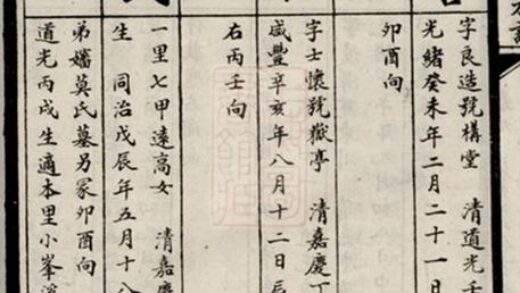 字良造號構堂　清道光壬
光緒癸未年二月二十一日
卯酉向
字士懷號嶽亭　清嘉慶丁
咸豐辛亥年八月十二日辰
右丙壬向
一里七甲達高女　清嘉慶
生　同治戊辰年五月十八
弟嬸莫氏墓另冢卯酉向
道光丙戌生適本里小峯溪